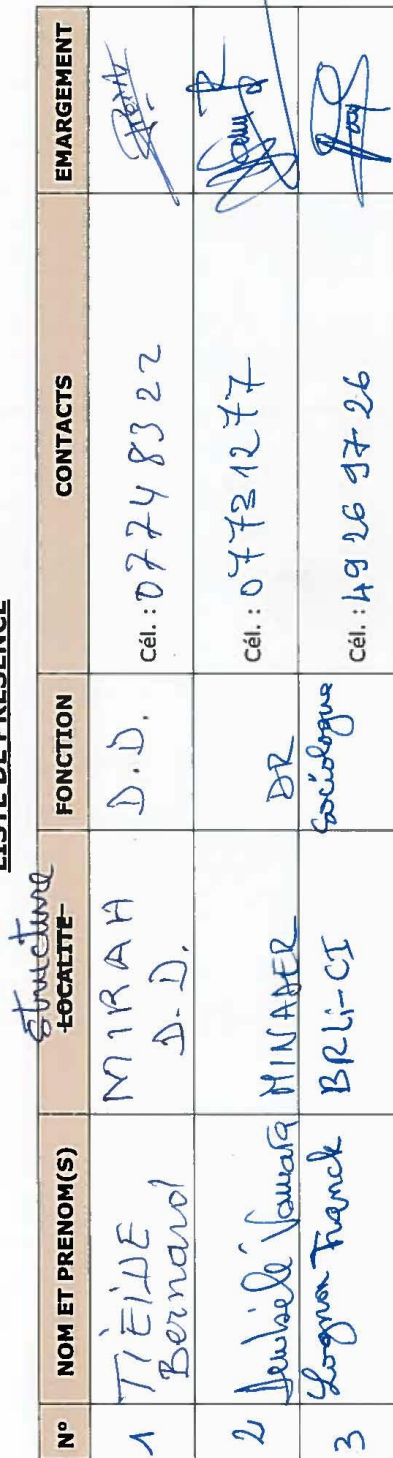 LISTE DE PRESENCE
N° NOM ET PRENOM(S) LOCALITE Structure FONCTION CONTACTS EMARGEMENT
1 TIEIDE Bernard MIRAH D.D. D.D. Cél. : 07748322
2 Vamara MINADER DR Cél. : 07731277
3 Lognon Franck BRLi-CI Sociologue Cél. : 49 26 97 26